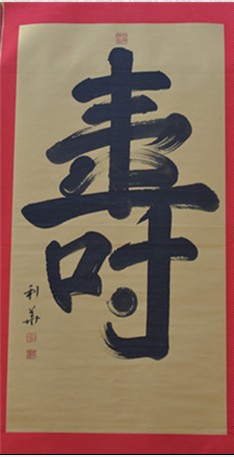 壽
利華